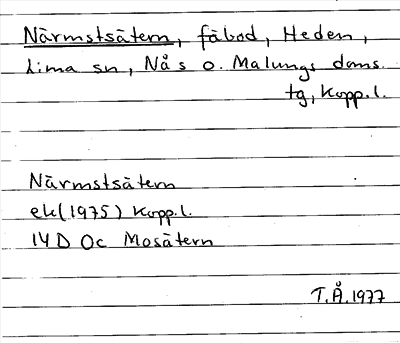 Närmstsätern, fäbod, Heden,
Lima sn, Nås o. Malungs doms.
tg, Kopp.l.
Närmstsätern
ek(1975) Kopp.l.
14D Oc Mosätern
T.Å.1977